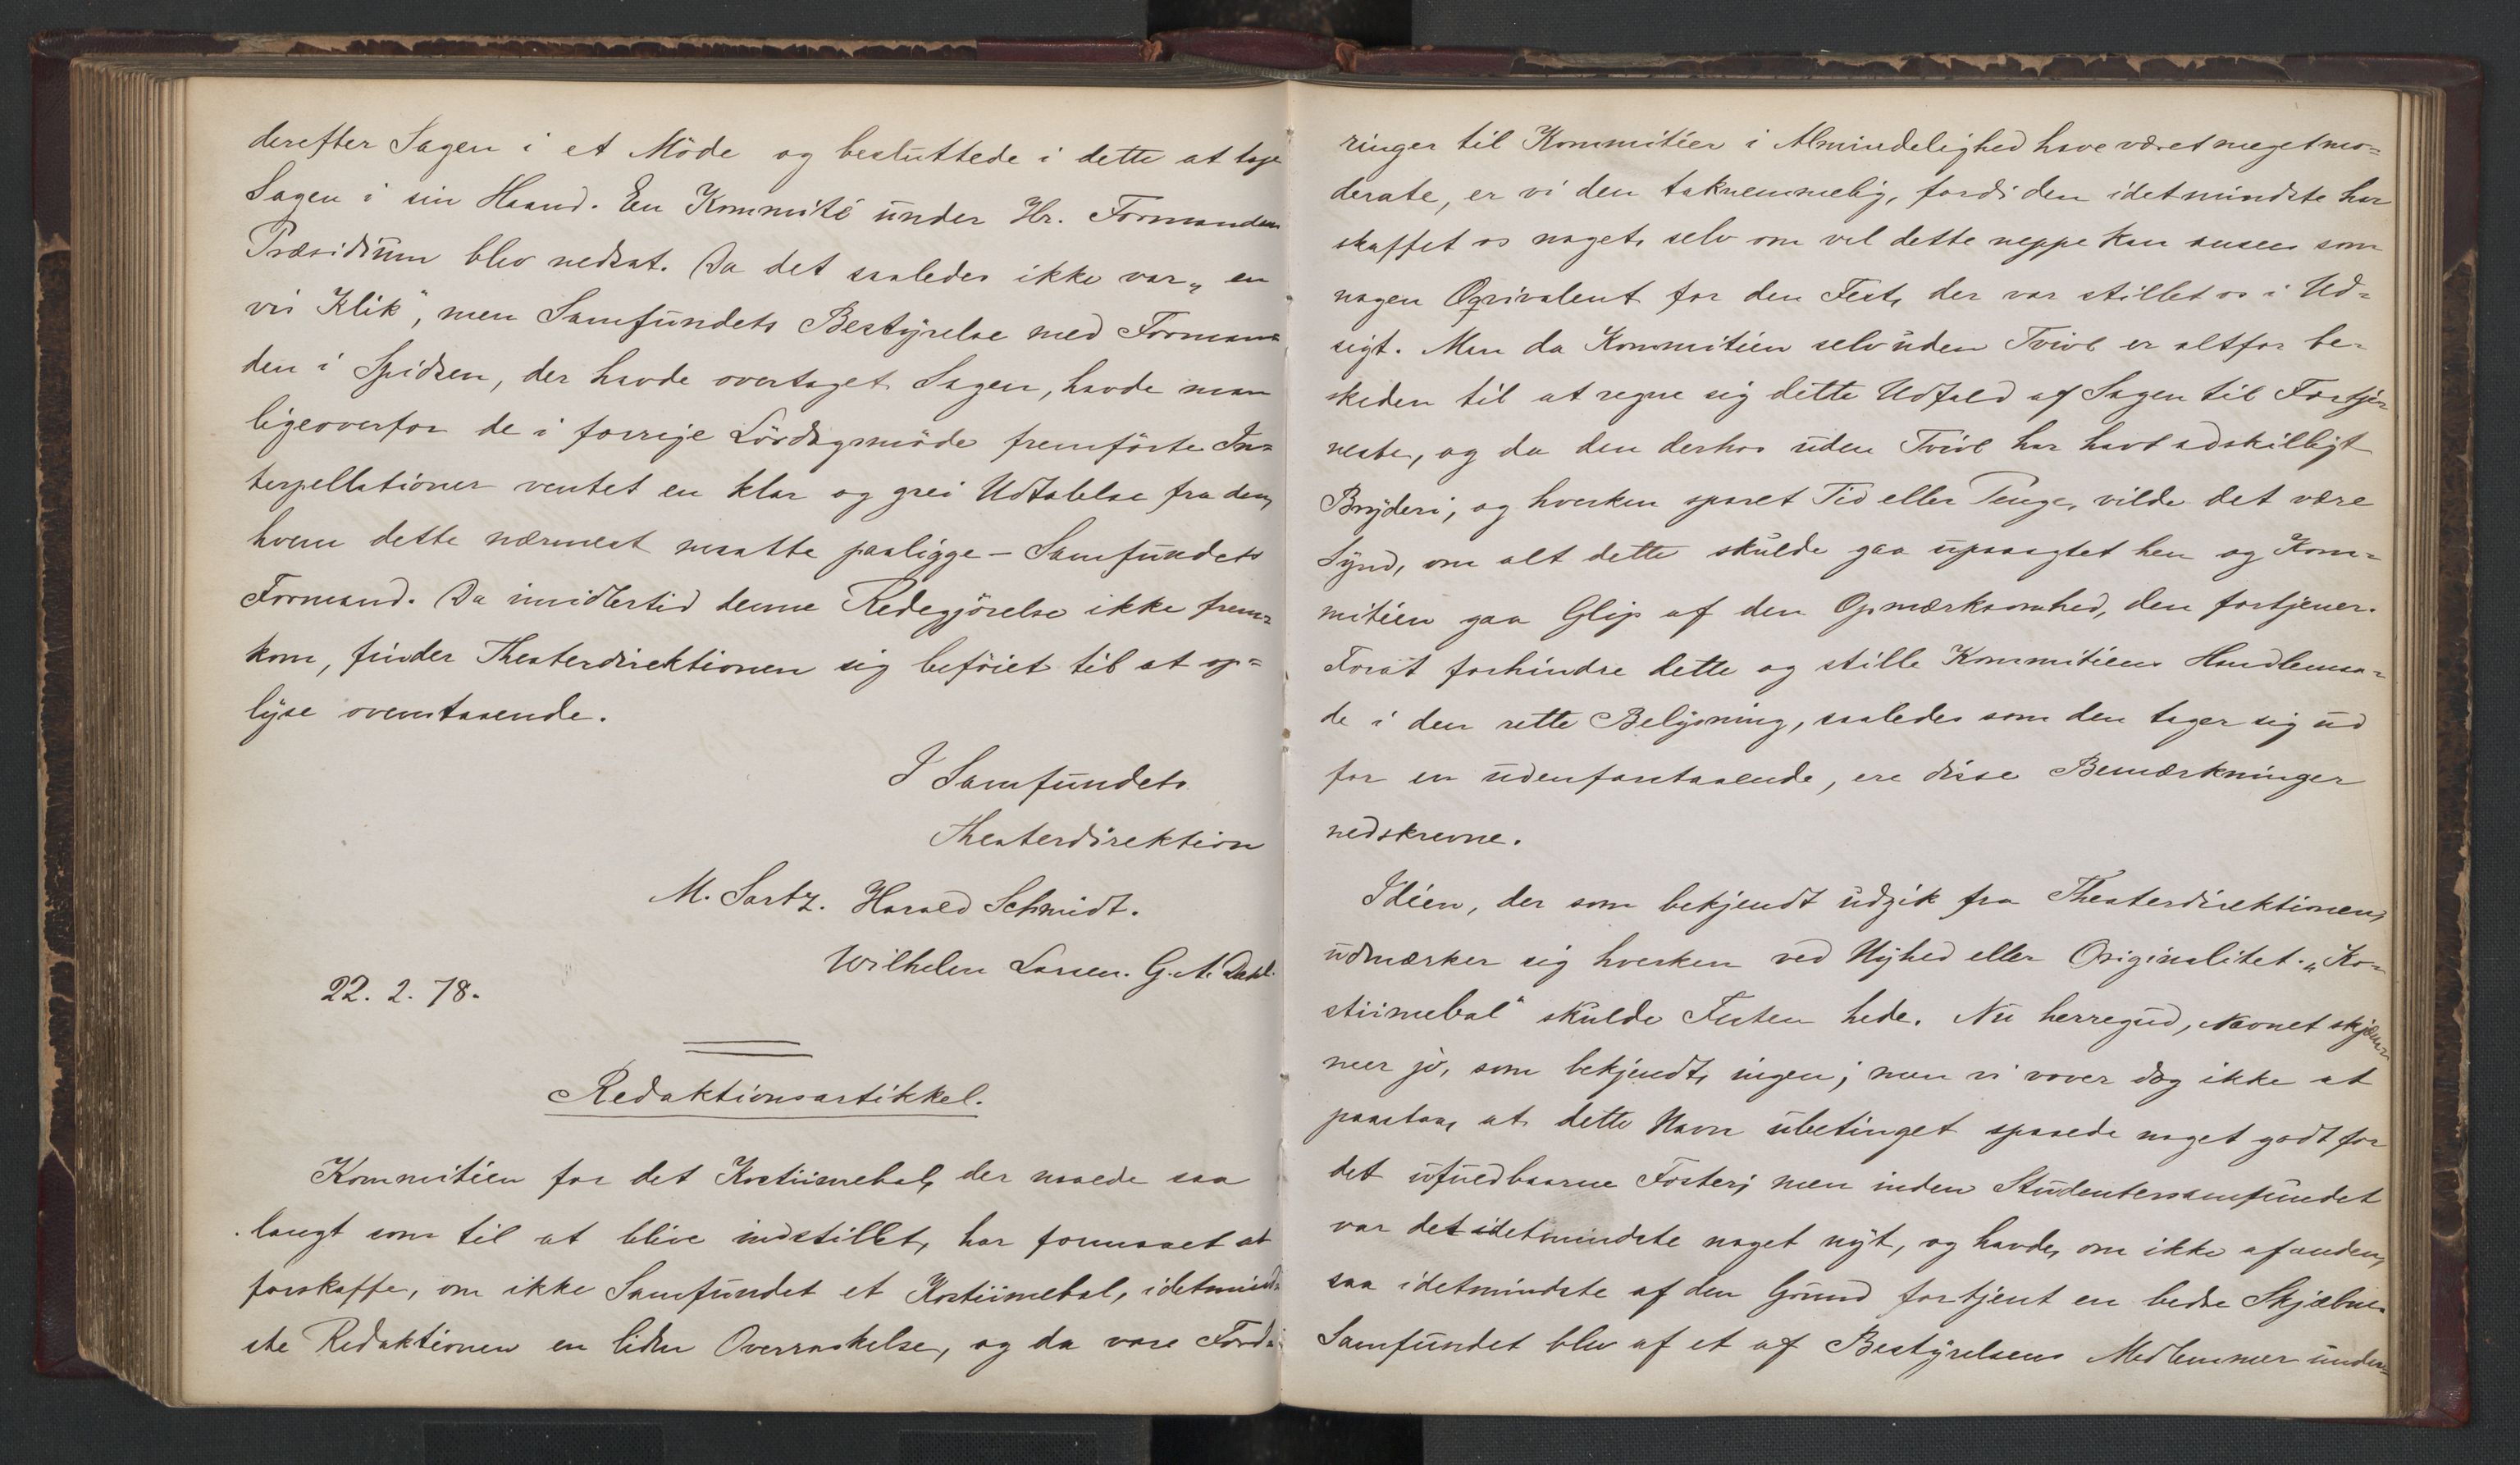 derefter Sagen i et Möde og besluttede i dette at tage
Sagen i sin Haand. En Kommité under Hr. Formandens
Præsidium blev nedsat. Da det saaledes ikke var „en
vis Klik", men Samfundets Bestyrelse med Forman-
den i Spidsen, der havde overtaget Sagen, havde man
ligeoverfor de i forrige Lördagsmöde fremförte In-
terpellationer ventet en klar og grei Udtalelse fra den,
hvem dette nærmest maatte paaligge – Samfundets
Formand. Da imidlertid denne Redegjörelse ikke frem-
kom, finder Theaterdirektionen sig beföiet til at op-
lyse ovenstaaende.
I Samfundets
Theaterdirektion
M. Sartz. Harald Schmidt.
Wilhelm Larsen. G. A. Dahl.
22. 2. 78.
Redaktionsartikkel.
Kommitéen for det Kostümebal, der naaede saa
langt som til at blive indstillet, har formaaet at
forskaffe, om ikke Samfundet et Kostümebal, idetmind-
ste Redaktionen en liden Overraskelse, og da vore Fordi-
ringer til Kommitéer i Almindelighed have været meget mo-
derate, er vi den taknemmelig, fordi den idetmindste har
skaffet os noget, selv om vel dette neppe kan ansees som
nogen Eqvivalent for den Fest, der var stillet os i Ud-
sigt. Men da Kommitéen selv uden Tvivl er altfor be-
skeden til at regne sig dette Udfald af Sagen til Fortje-
neste, og da den derhos uden Tvivl har havt adskilligt
Bryderi, og hverken sparet Tid eller Penge, vilde det være
Synd, om alt dette skulde gaa upaaagtet hen og Kom-
mitéen gaa Glip af den Opmærksomhed, den fortjener.
Forat forhindre dette og stille Kommitéens Handlemaa-
de i den rette Belysning, saaledes som den tager sig ud
for en udenforstaaende, ere disse Bemærkninger
nedskrevne.
Idéen, der som bekjendt udgik fra Theaterdirektionen,
udmærker sig hverken ved Nyhed eller Originalitet. „Ko-
stümebal" skulde Festen hede. Nu herregud, Navnet skjæm-
mer jo, som bekjendt, ingen; men vi vover dog ikke at
paastaa, at dette Navn ubetinget spaaede noget godt for
det ufuldbaarne Foster; men inden Studentersamfundet
var det idetmindste noget nyt, og havde, om ikke af anden,
saa idetmindste af den Grund fortjent en bedre Skjæbne.
Samfundet blev af et af Bestyrelsens Medlemmer under-